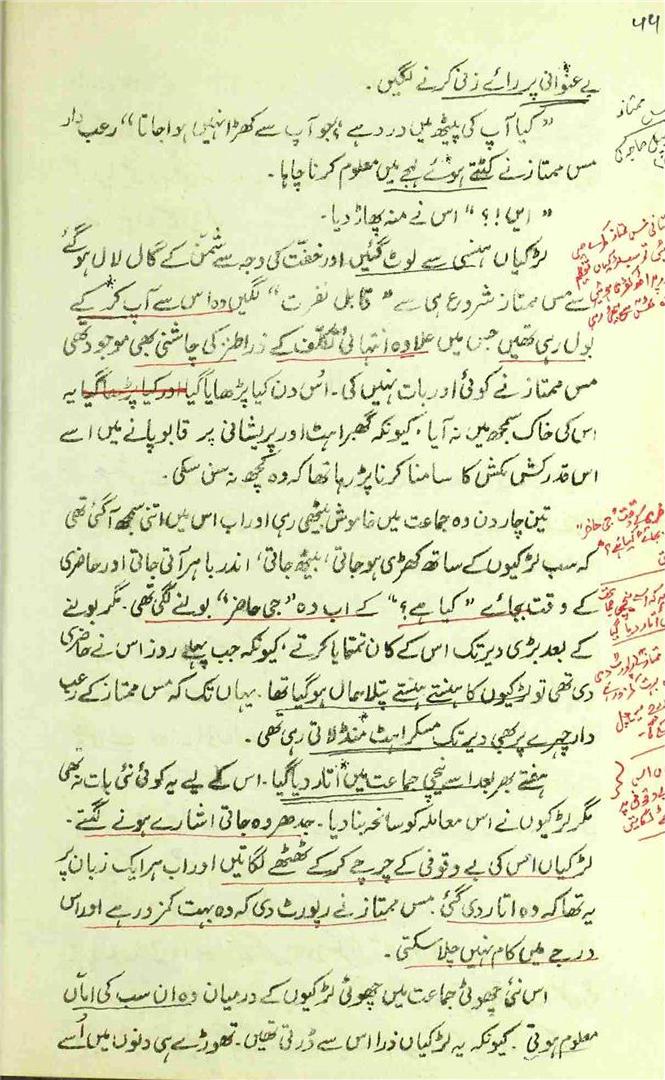 ۶۶
بے عنوانی پر رائے زنی کرنے لگیں۔
”کیا آپ کی پیٹھ میں درد ہے جو آپ سے کھڑا نہیں ہوا جاتا“ رعب دار
مس ممتاز نے کٹتے ہوئے لہجے میں معلوم کرنا چاہا۔
”ایں!؟“ اس نے منہ پھاڑ دیا۔
لڑکیاں ہنسی سے لوٹ گئیں اور خفّت کی وجہ سے شمّن کے گال لال ہو گئے
اسے مس ممتاز شروع ہی سے ”قابل نفرت“ لگیں وہ اس سے آپ کر کے
بول رہی تھیں جس میں علاوہ انتہائی تکلّف کے ذرا طنز کی چاشنی بھی موجود تھی
مس ممتاز نے کوئی اور بات نہیں کی۔ اُس دن کیا پڑھایا گیا اور کیا پڑھا گیا یہ
اس کی خاک سمجھ میں نہ آیا، کیونکہ گھبراہٹ اور پریشانی پر قابو پانے میں اسے
اس قدر کش مکش کا سامنا کرنا پڑ رہا تھا کہ وہ کچھ نہ سن سکی۔
تین چار دن وہ جماعت میں خاموش بیٹھی رہی اور اب اس میں اتنی سمجھ آ گئی تھی
کہ سب لڑکیوں کے ساتھ کھڑی ہو جاتی، بیٹھ جاتی، اندر باہر آتی جاتی اور حاضری
کے وقت بجائے ”کیا ہے؟“ کے اب وہ ”جی حاضر“ بولنے لگی تھی۔ مگر بولنے
کے بعد بڑی دیر تک اس کے کان تمتمایا کرتے، کیونکہ جب پہلے روز اس نے حاضری
دی تھی تو لڑکیوں کا ہنستے ہنستے پتلا حال ہو گیا تھا۔ یہاں تک کہ مس ممتاز کے رعب
دار چہرے پر بھی دیر تک مسکراہٹ منڈلاتی رہی تھی۔
ہفتے بھر بعد اسے نیچی جماعت میں اتار دیا گیا۔ اس کے لیے یہ کوئی نئی بات نہ تھی
مگر لڑکیوں نے اس معاملہ کو سانحہ بنا دیا۔ جدھر وہ جاتی اشارے ہونے لگتے۔
لڑکیاں اس کی بے وقوفی کے چرچے کر کے ٹھٹھے لگاتیں اور اب ہر ایک زبان پر
یہ تھا کہ وہ اتار دی گئی۔ مس ممتاز نے رپورٹ دی کہ وہ بہت کمزور ہے اور اس
درجے میں کام نہیں چلا سکتی۔
اس نئی چھوٹی جماعت میں چھوٹی لڑکیوں کے درمیان وہ ان سب کی امّاں
معلوم ہوتی۔ کیونکہ یہ لڑکیاں ذرا اس سے ڈرتی تھیں۔ تھوڑے ہی دنوں میں اُسے